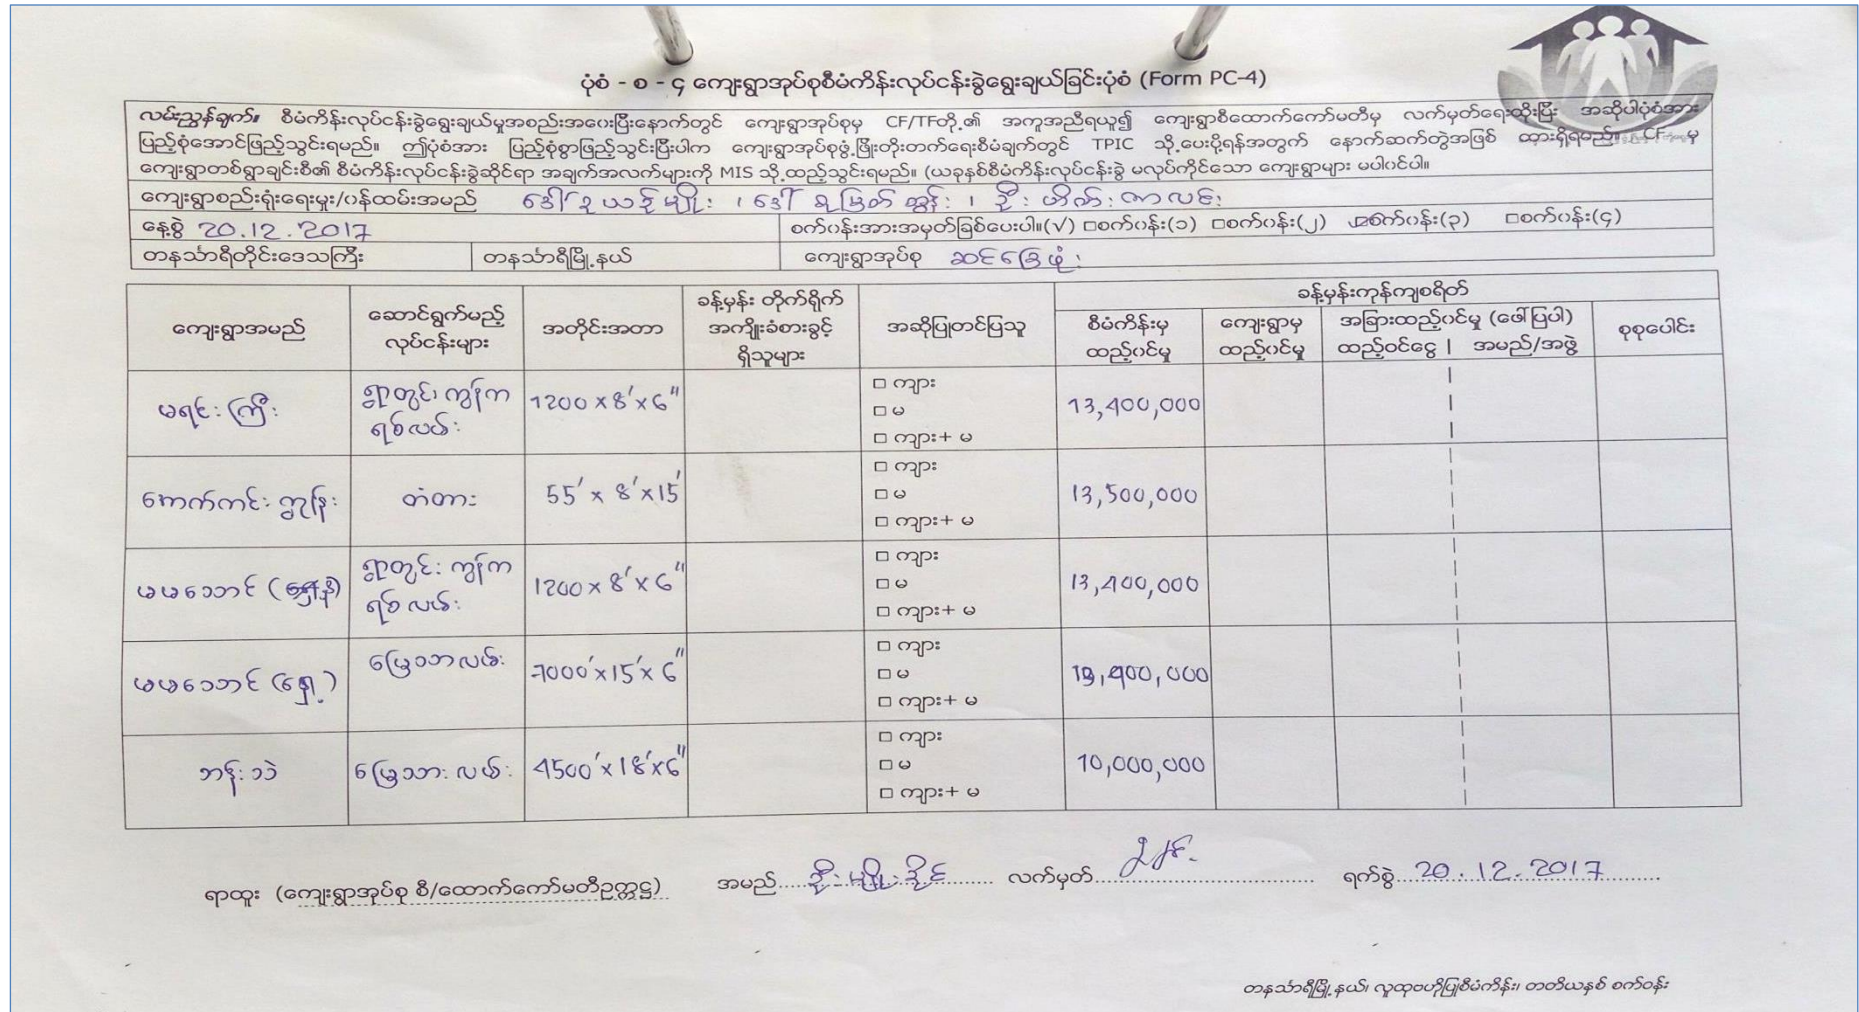 ပုံစံ - စ - ၄ ကျေးရွာအုပ်စုစီမံကိန်းလုပ်ငန်းခွဲရွေးချယ်ခြင်းပုံစံ (Form PC-4)
လမ်းညွှန်ချက်။ စီမံကိန်းလုပ်ငန်းခွဲရွေးချယ်မှုအစည်းအဝေးပြီးနောက်တွင် ကျေးရွာအုပ်စုမှ CF/TFတို့၏ အကူအညီရယူ၍ ကျေးရွာစီထောက်ကော်မတီမှ လက်မှတ်ရေးထိုးပြီး အဆိုပါပုံစံအား
ပြည့်စုံအောင်ဖြည့်သွင်းရမည်။ ဤပုံစံအား ပြည့်စုံစွာဖြည့်သွင်းပြီးပါက ကျေးရွာအုပ်စုဖွံ့ဖြိုးတိုးတက်ရေးစီမံချက်တွင် TPIC သို့ပေးပို့ရန်အတွက် နောက်ဆက်တွဲအဖြစ် ထားရှိရမည်။ CF မှ
ကျေးရွာတစ်ရွာချင်းစီ၏ စီမံကိန်းလုပ်ငန်းခွဲဆိုင်ရာ အချက်အလက်များကို MIS သို့ထည့်သွင်းရမည်။ (ယခုနှစ်စီမံကိန်းလုပ်ငန်းခွဲ မလုပ်ကိုင်သော ကျေးရွာများ မပါဝင်ပါ။
ကျေးရွာစည်းရုံးရေးမှူး/ဝန်ထမ်းအမည်
နေ့စွဲ 20.12.2017 စက်ဝန်းအားအမှတ်ခြစ်ပေးပါ။(√) □စက်ဝန်း(၁) □စက်ဝန်း(၂) ☑စက်ဝန်း(၃) □စက်ဝန်း(၄)
တနင်္သာရီတိုင်းဒေသကြီး တနင်္သာရီမြို့နယ် ကျေးရွာအုပ်စု ဆင်ခြေဖုံး
ကျေးရွာအမည် ဆောင်ရွက်မည့် လုပ်ငန်းများ အတိုင်းအတာ ခန့်မှန်း တိုက်ရိုက် အကျိုးခံစားခွင့် ရှိသူများ အဆိုပြုတင်ပြသူ ခန့်မှန်းကုန်ကျစရိတ်
စီမံကိန်းမှ ထည့်ဝင်မှု ကျေးရွာမှ ထည့်ဝင်မှု အခြားထည့်ဝင်မှု (ဖော်ပြပါ) ထည့်ဝင်ငွေ | အမည်/အဖွဲ့ စုစုပေါင်း
မရင်းကြီး ရွာတွင်း ကွန်ကရစ်လမ်း 1200 x 8' x 6" □ ကျား □ မ □ ကျား+ မ 13,400,000
တံတား 55' x 8' x 15' □ ကျား □ မ □ ကျား+ မ 13,500,000
ရွာတွင်း ကွန်ကရစ်လမ်း 1200 x 8' x 6" □ ကျား □ မ □ ကျား+ မ 13,400,000
မြေသားလမ်း 7000' x 15' x 6" □ ကျား □ မ □ ကျား+ မ
မြေသားလမ်း 4500' x 18' x 6" □ ကျား □ မ □ ကျား+ မ 10,000,000
ရာထူး (ကျေးရွာအုပ်စု စီ/ထောက်ကော်မတီဥက္ကဋ္ဌ) အမည် ဦးမျိုးနိုင် လက်မှတ် ရက်စွဲ 20.12.2017
တနင်္သာရီမြို့နယ်၊ လူထုဗဟိုပြုစီမံကိန်း၊ တတိယနှစ် စက်ဝန်း